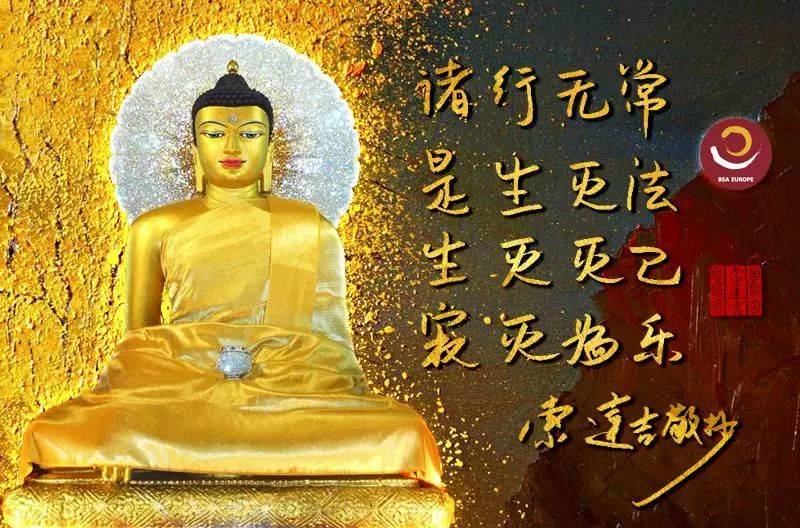 诸行无常
是生灭法
生灭灭已
寂灭为乐
索达吉敬抄
BSA EUROPE